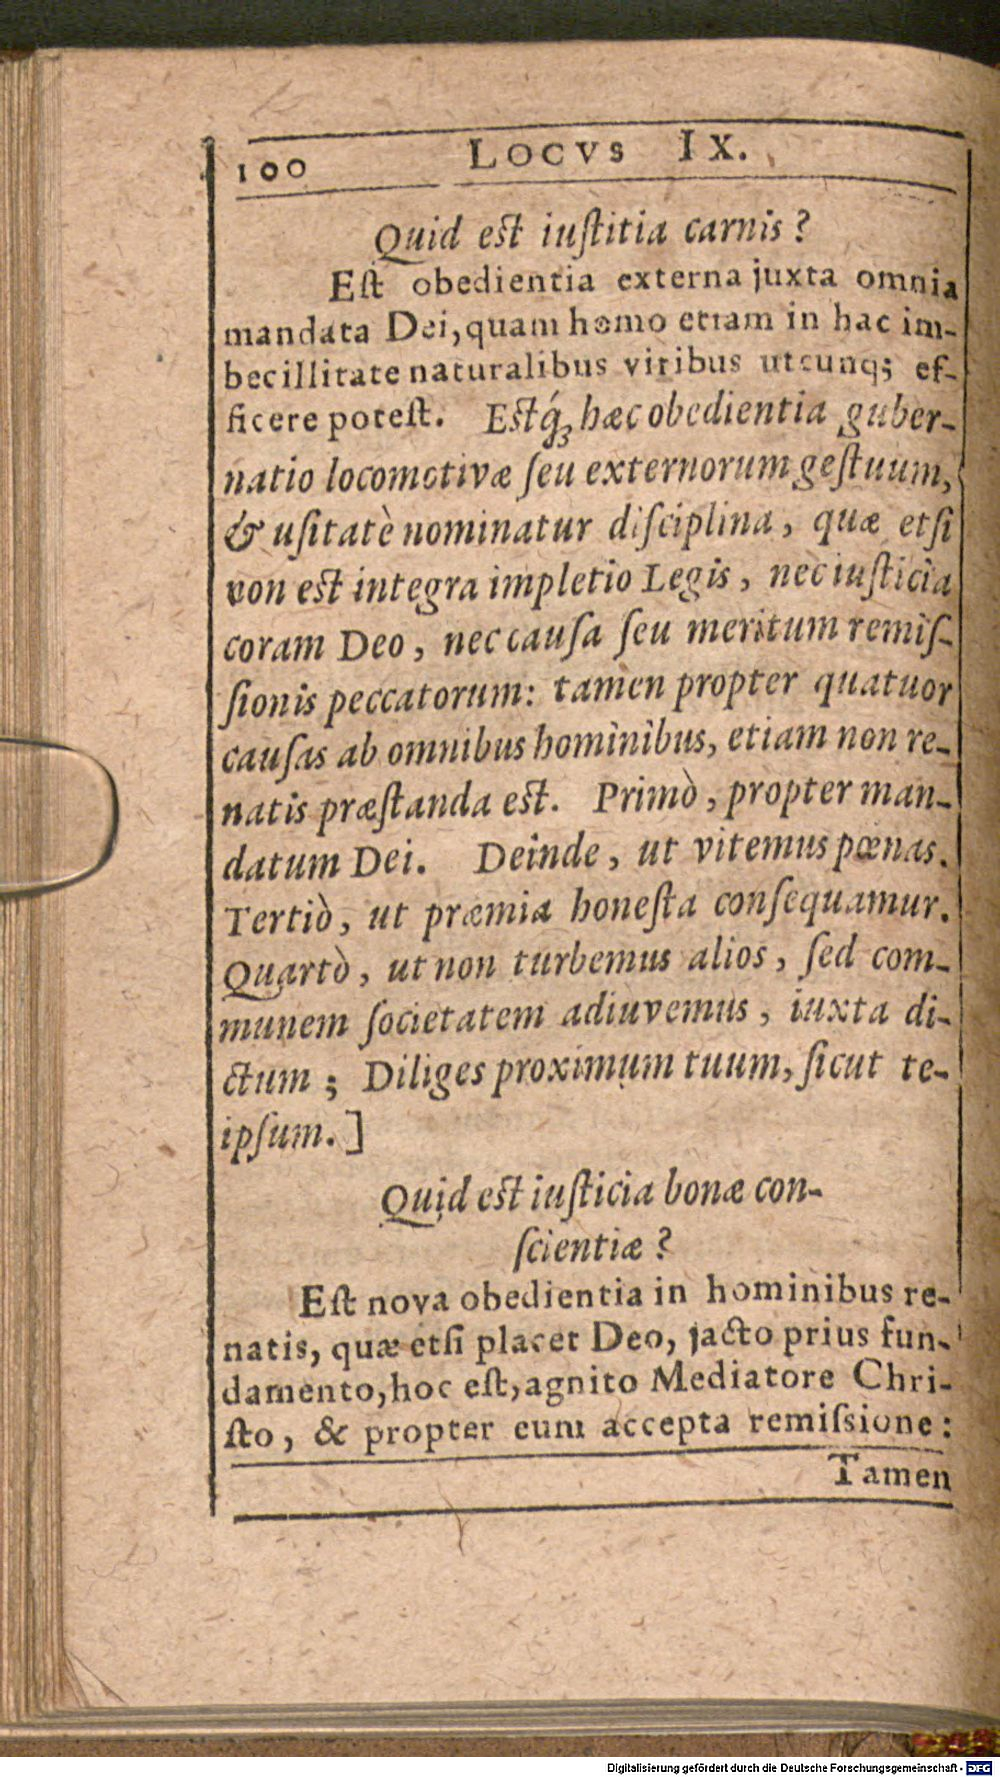 100 LOCVS IX.
Quid eſt iuſtitia carnis?
Eſt obedientia externa juxta omnia
mandata Dei, quam homo etiam in hac im-
becillitate naturalibus viribus utcunq; ef-
ficere poteſt. Eſtq́ꝫ hæc obedientia guber-
natio locomotivæ ſeu externorum geſtuum,
& uſitatè nominatur diſciplina, quæ etſi
non eſt integra impletio Legis, nec iuſticia
coram Deo, nec cauſa ſeu meritum remiſ-
ſionis peccatorum: tamen propter quatuor
cauſas ab omnibus hominibus, etiam non re-
natis præſtanda eſt. Primò, propter man-
datum Dei. Deinde, ut vitemus pœnas.
Tertiò, ut præmia honeſta conſequamur.
Quartò, ut non turbemus alios, ſed com-
munem ſocietatem adiuvemus, iuxta di-
ctum; Diliges proximum tuum, ſicut te-
ipſum.]
Quid eſt iuſticia bonæ con-
ſcientiæ?
Eſt nova obedientia in hominibus re-
natis, quæ etſi placet Deo, jacto prius fun-
damento, hoc eſt, agnito Mediatore Chri-
ſto, & propter eum accepta remiſsione:
Tamen
Digitalisierung gefördert durch die Deutsche Forschungsgemeinschaft - DFG